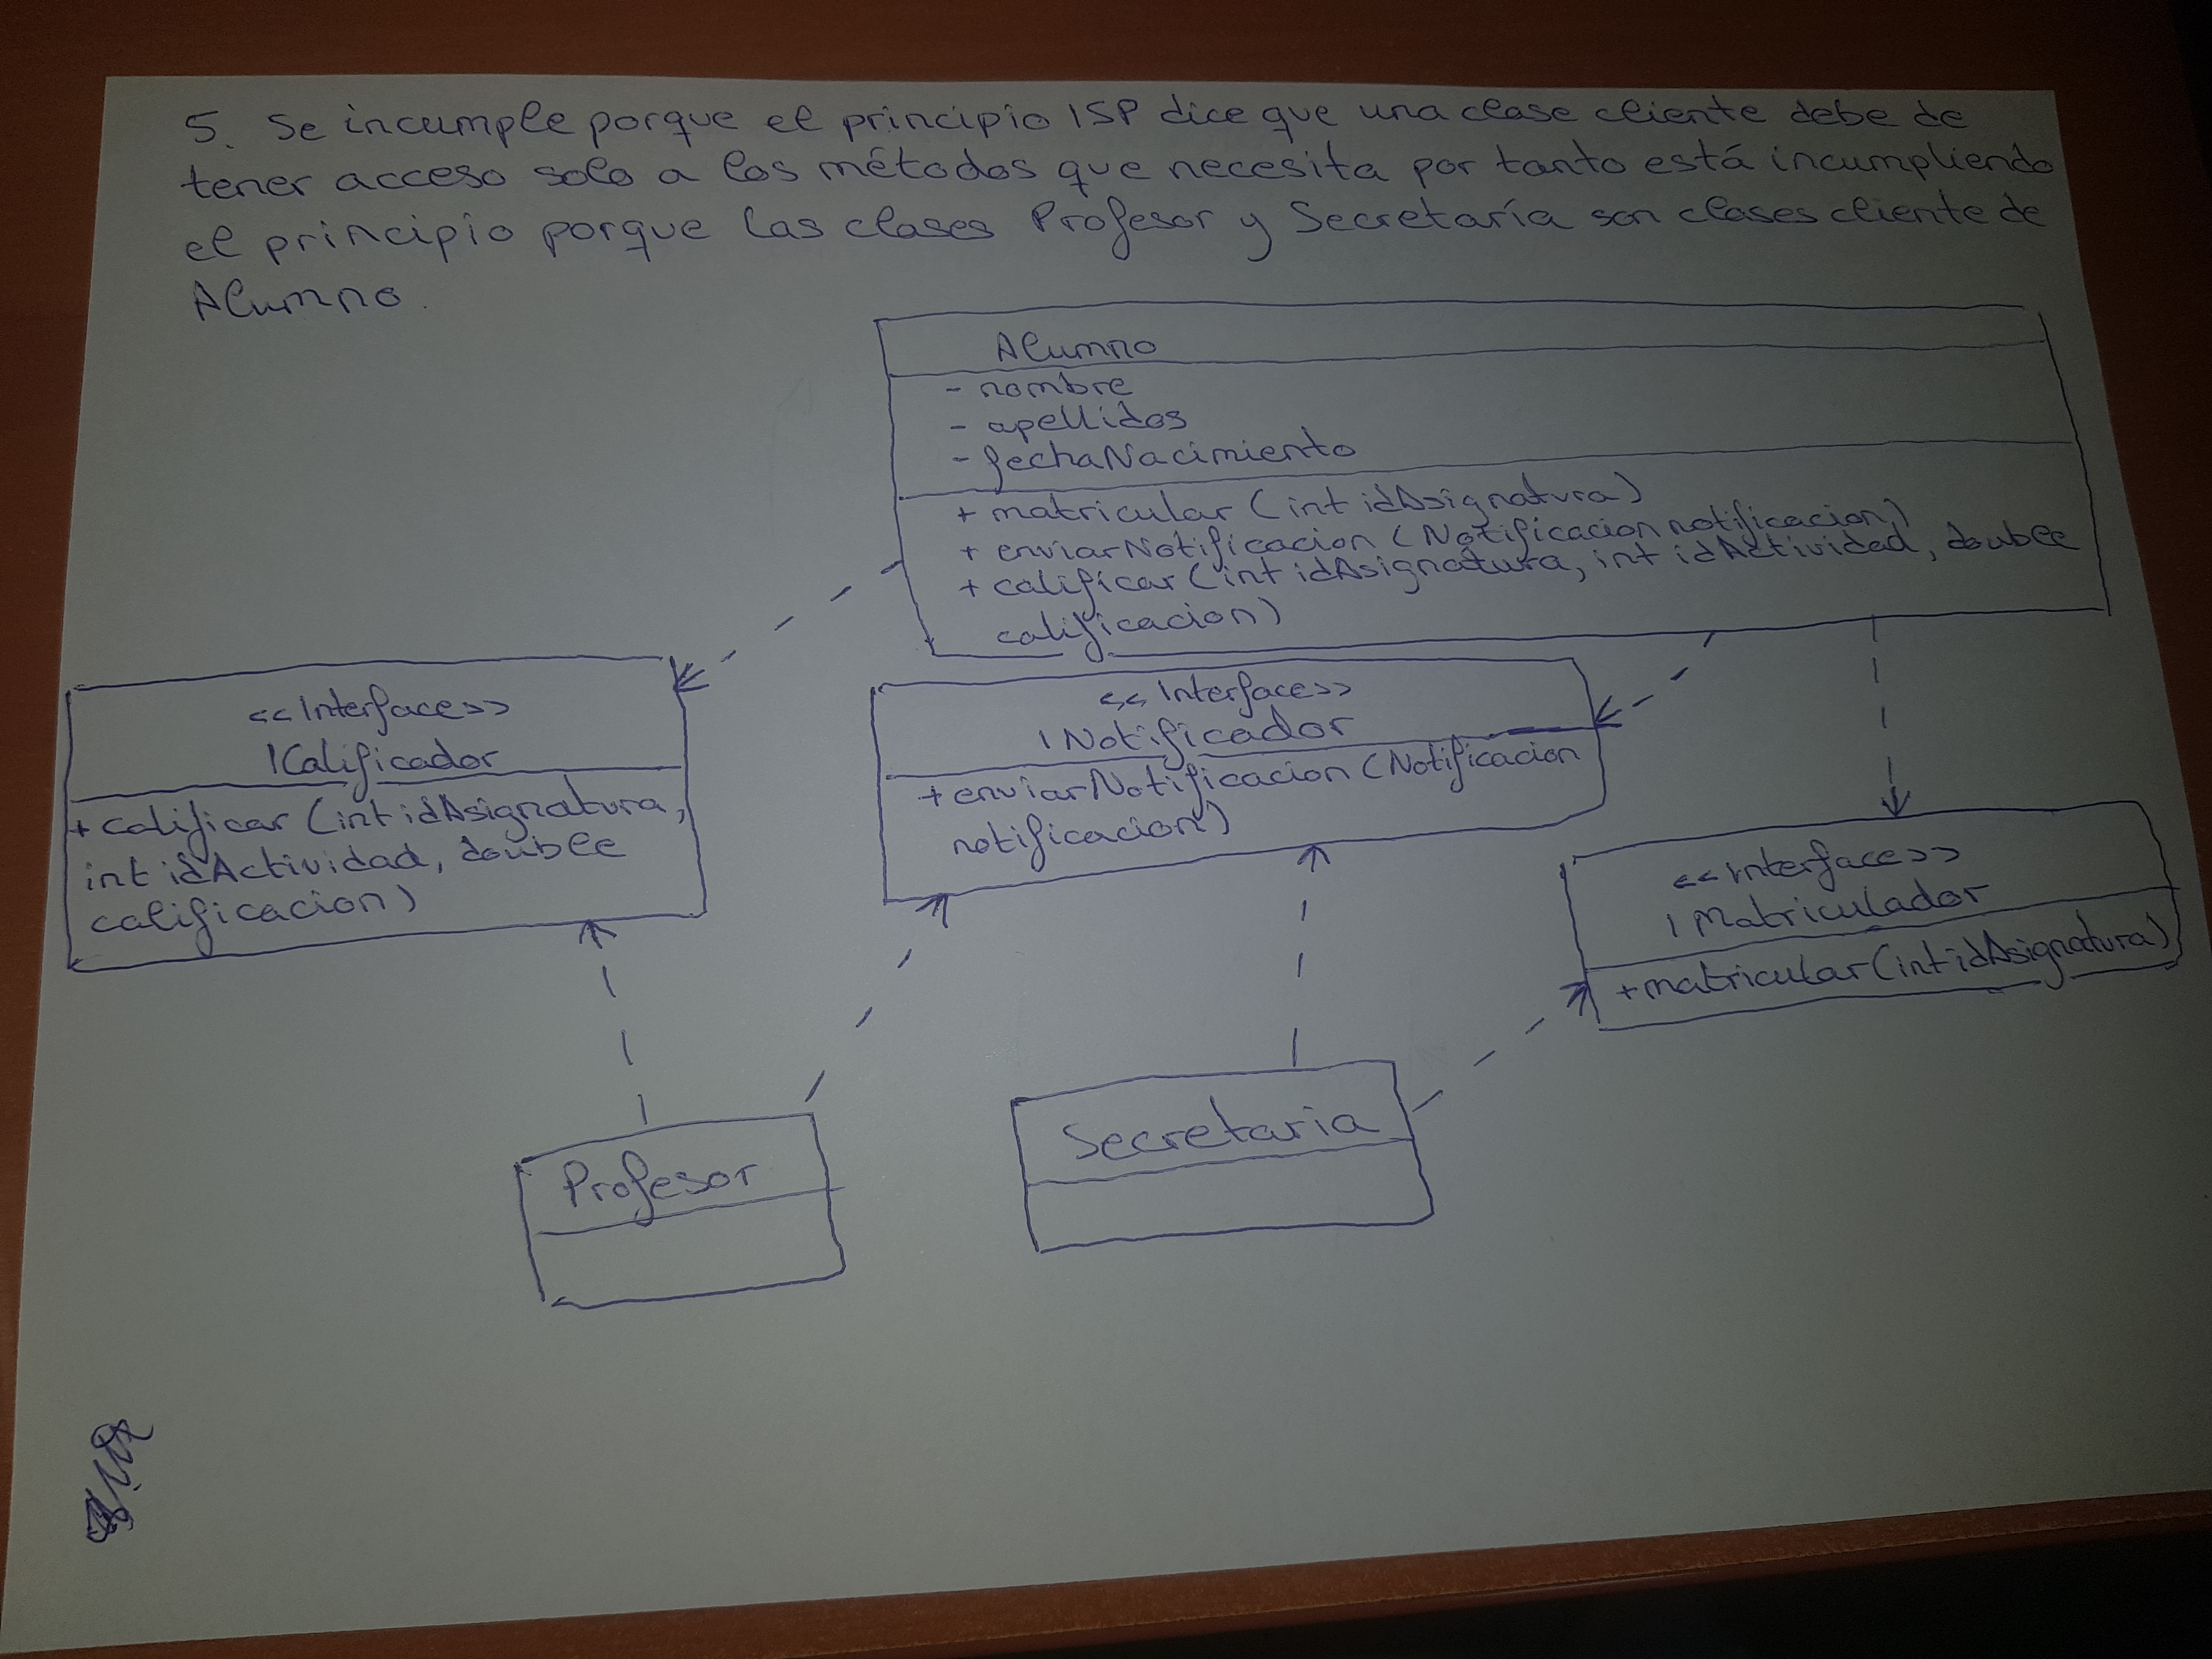 5. Se incumple porque el principio ISP dice que una clase cliente debe de
tener acceso solo a los métodos que necesita por tanto está incumpliendo
el principio porque las clases Profesor y Secretaría son clases cliente de
Alumno.
Alumno
- nombre
- apellidos
- fechaNacimiento
+ matricular (int idAsignatura)
+ enviarNotificacion (Notificacion notificacion)
+ calificar (int idAsignatura, int idActividad, double
calificacion)
<<Interface>>
ICalificador
+ calificar (int idAsignatura,
int idActividad, double
calificacion)
<<Interface>>
INotificador
+ enviarNotificacion (Notificacion
notificacion)
<<Interface>>
IMatriculador
+ matricular (int idAsignatura)
Profesor
Secretaria